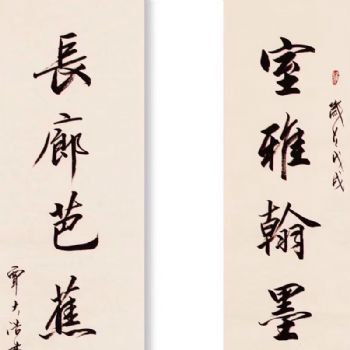 歲在戊戌
室雅翰墨
長廊芭蕉
大浩